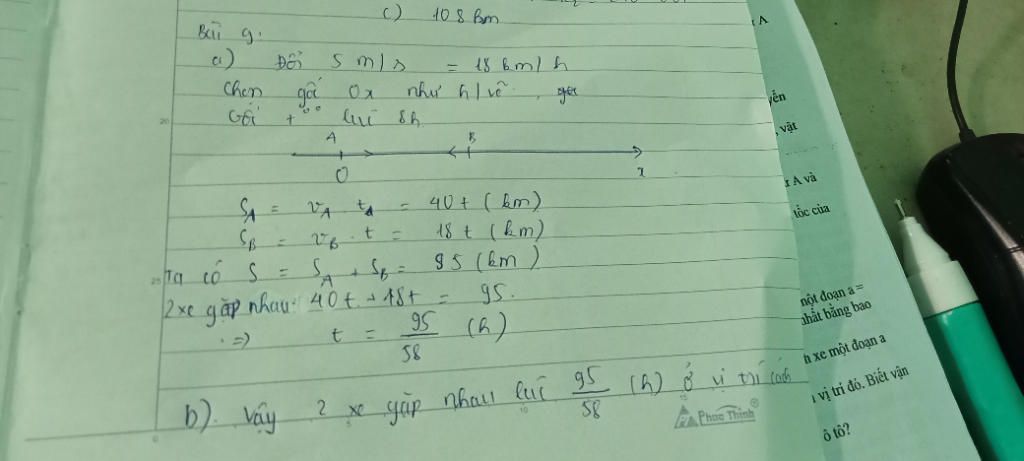 c) 108 km
Bài 9.
a) Đổi 5 m/s = 18 km/h
Chọn gốc Ox như h/vẽ.
Gốc t° lúc 8h
A B
O x
S_A = v_A t_A = 40t (km)
S_B = v_B . t = 18t (km)
Ta có S = S_A + S_B = 95 (km)
2 xe gặp nhau: 40t + 18t = 95.
=> t = 95/58 (h)
b). Vậy 2 xe gặp nhau lúc 95/58 (h) ở vị trí cách
Phúc Thịnh®
A
yển
vật
A và
tốc của
một đoạn a =
nhất bằng bao
h xe một đoạn a
vị trí đó. Biết vận
ô tô?